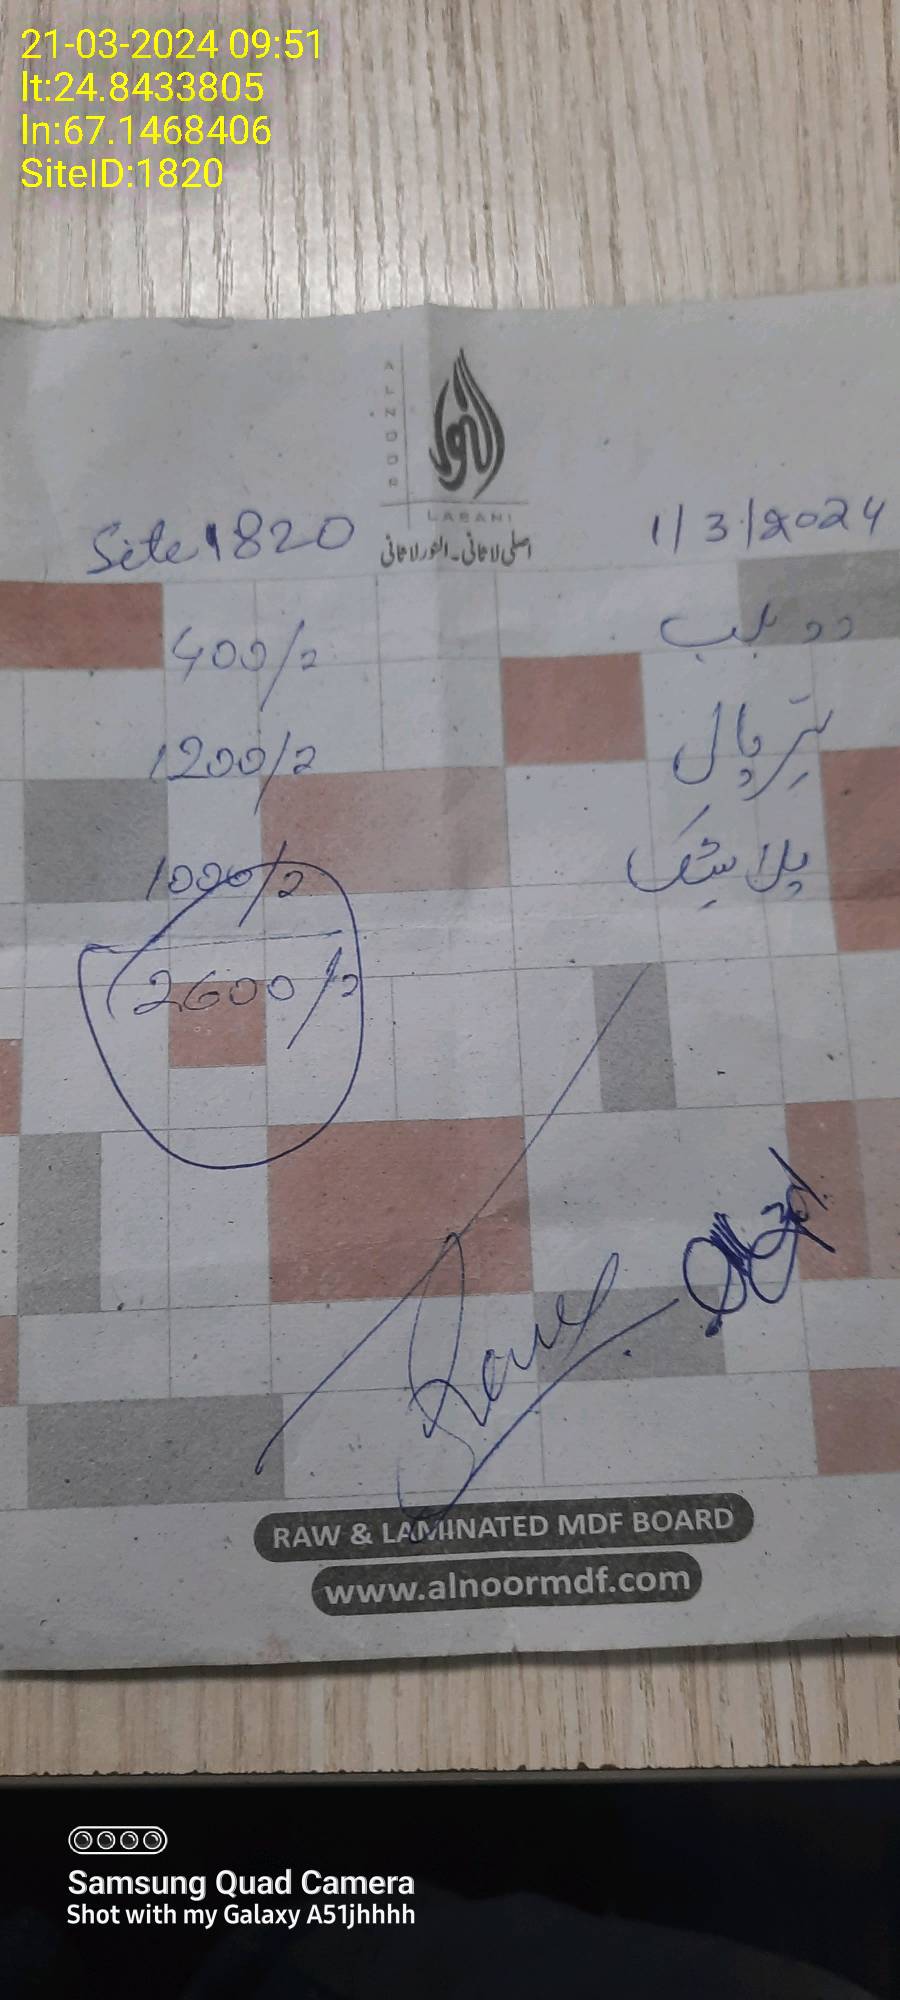 21-03-2024 09:51
lt:24.8433805
ln:67.1468406
SiteID:1820
ALNOOR
النور
LASANI
اصلی لاثانی۔النور لاثانی
Site 1820
1/3/2024
دو بلب 400/=
ترپال 1200/=
پلاسٹک 1000/=
2600/=
RAW & LAMINATED MDF BOARD
www.alnoormdf.com
Samsung Quad Camera
Shot with my Galaxy A51jhhhh